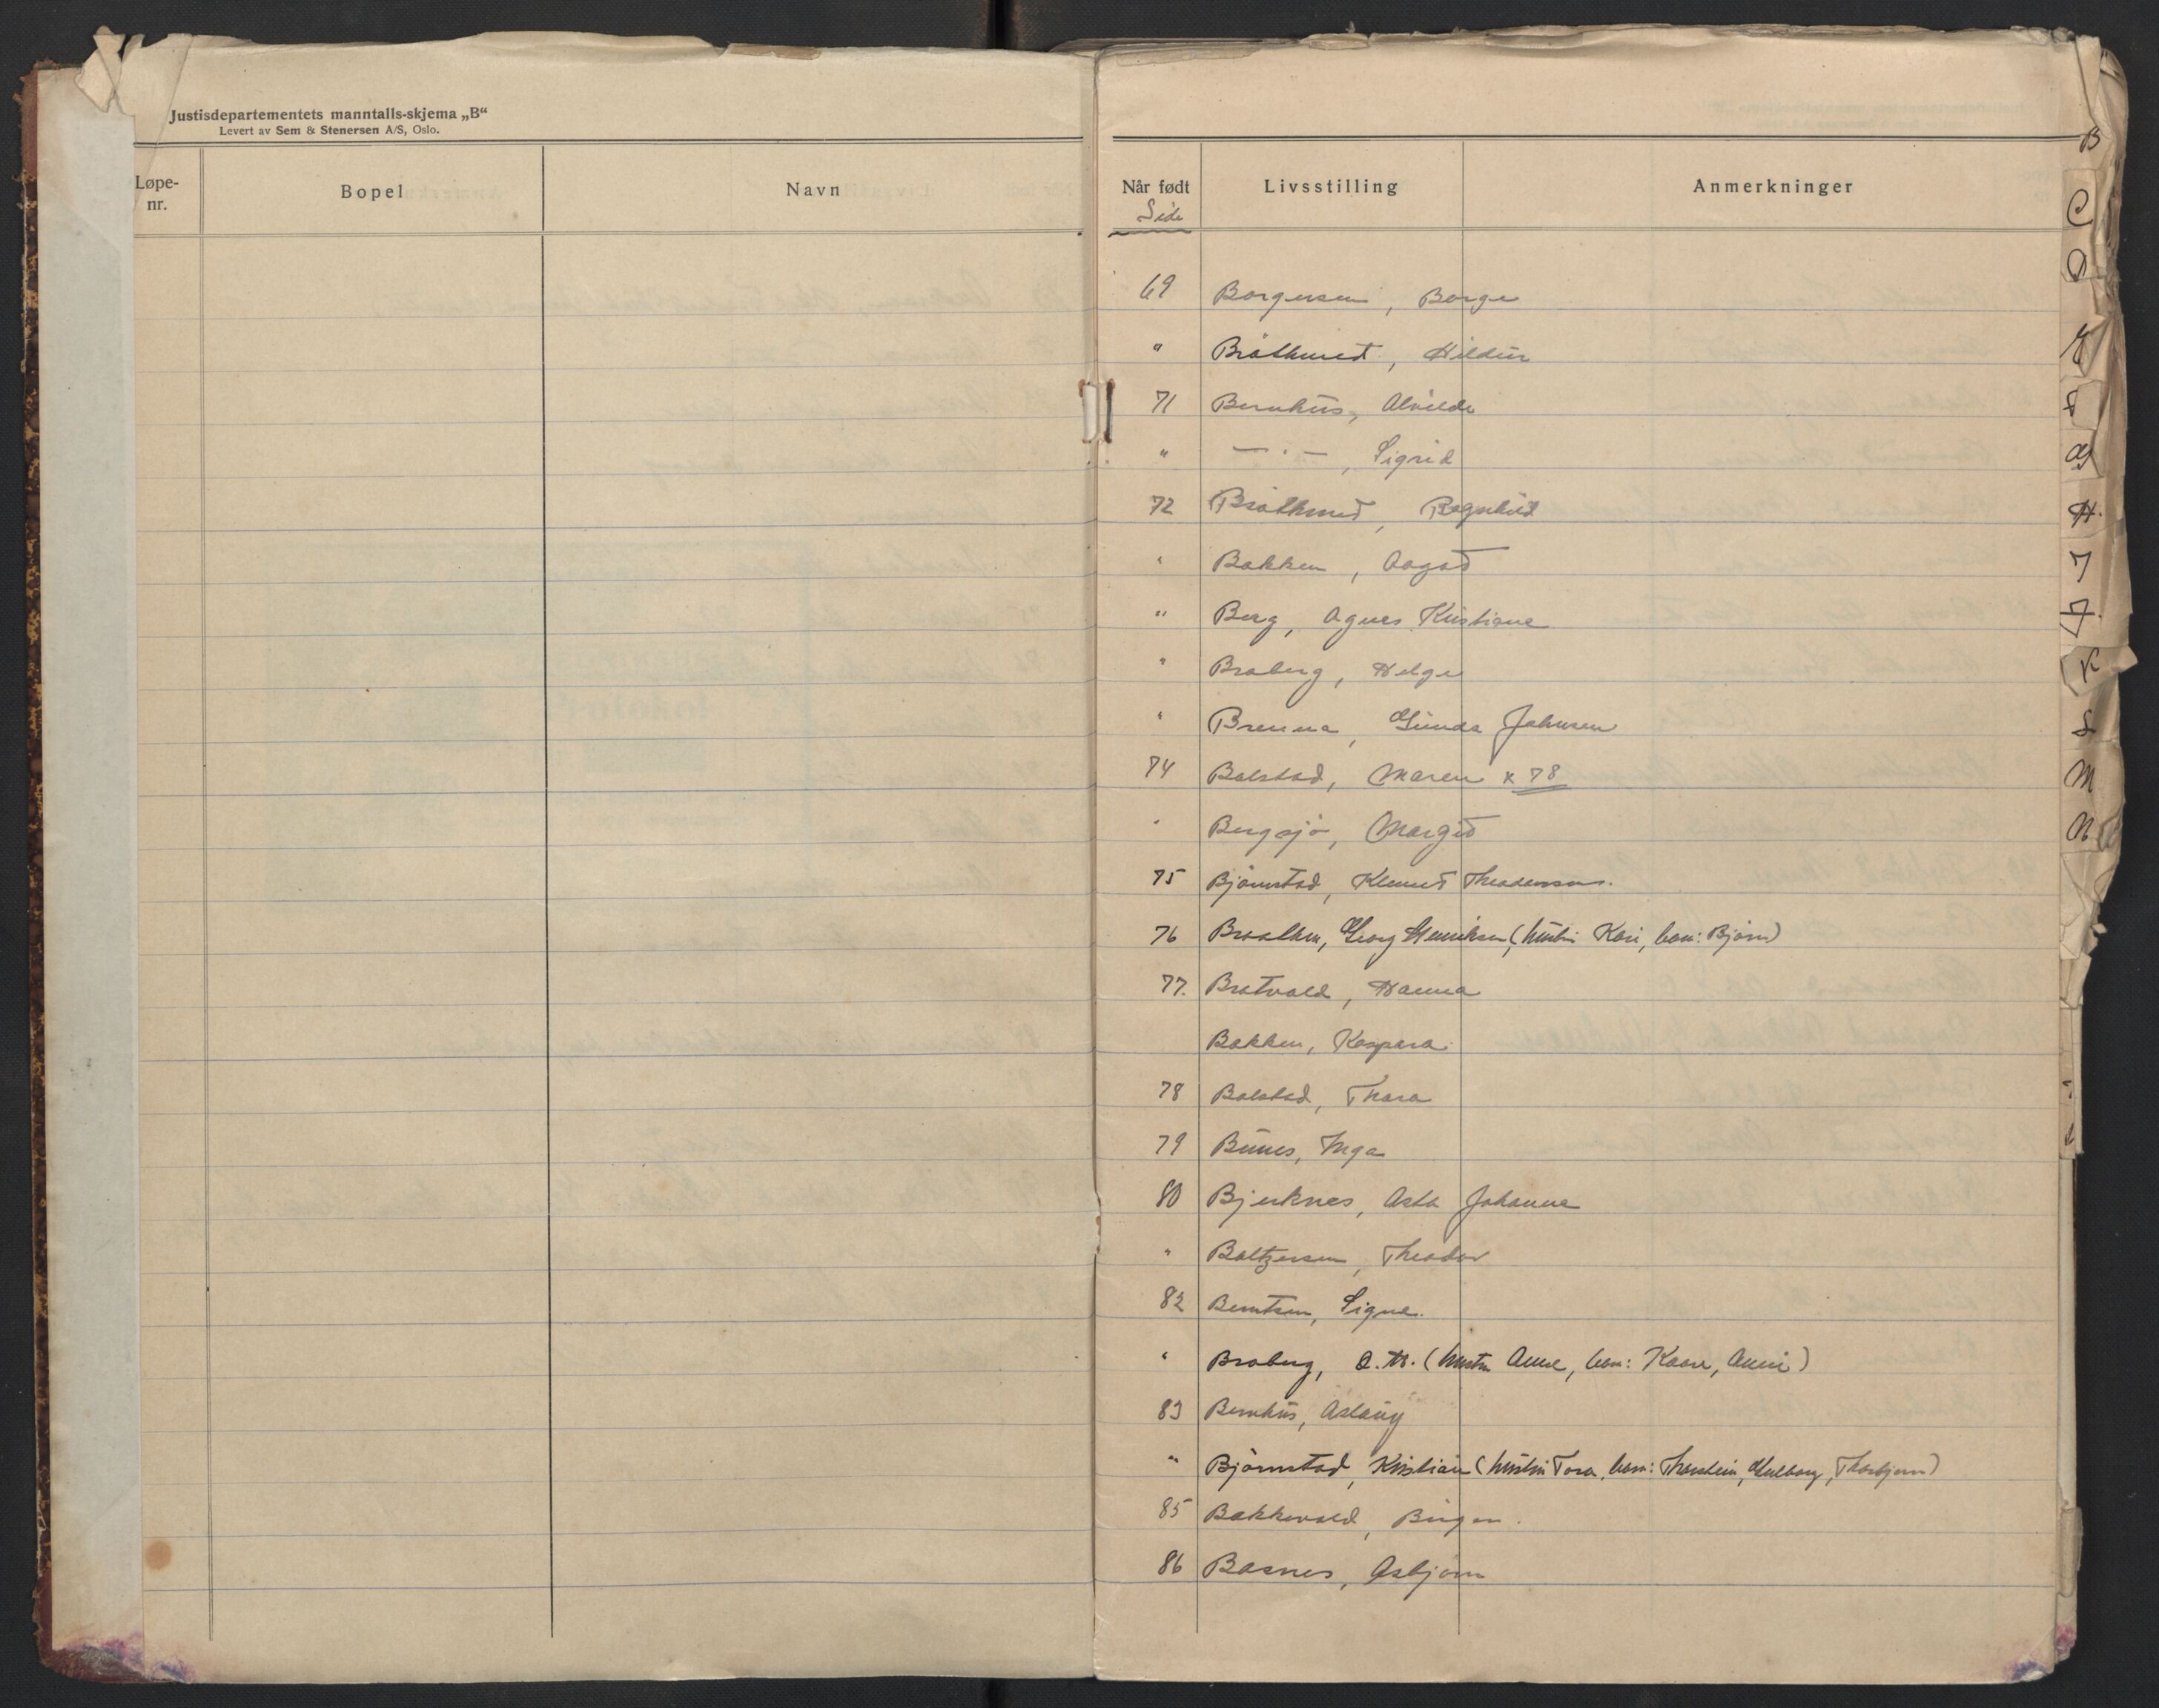 Justisdepartementets manntalls-skjema „B“
Levert av Sem & Stenersen A/S, Oslo.
Løpe-nr.
Bopel
Navn
Når født
Livsstilling
Anmerkninger
Side
69 Borgersen, Borge
" Bråthund, Hildur
71 Bernhus, Alvilde
" —"—, Sigrid
72 Bråthund, Ragnhild
" Bakken, Aagot
" Berg, Agnes Kristiane
" Braberg, Helge
" Brenna, Gunda Johnsen
74 Balstad, Maren x 78
" Bergsjø, Margit
75 Bjørnstad, Klemet
76 Braathen, Georg Henriksen (hustru Kari, barn: Bjørn)
77. Bratvold, Hanna
Bakken, Kaspara
78 Balstad, Thora
79 Bunes, Inga
80 Bjerknes, Asta Johanne
" Baltzersen, Theodor
82 Berntsen, Signe.
" Braberg, O. M. (hustru Anne, barn: Kaare, Anni)
83 Bernhus, Aslaug
" Bjørnstad, Kristian (hustru Tora, barn: Thorstein, Gulborg, Thorbjørn)
85 Bakkevold, Birger.
86 Basnes, Asbjørn
B
C
D
E
F
G
H.
I
J.
K
L
M
N